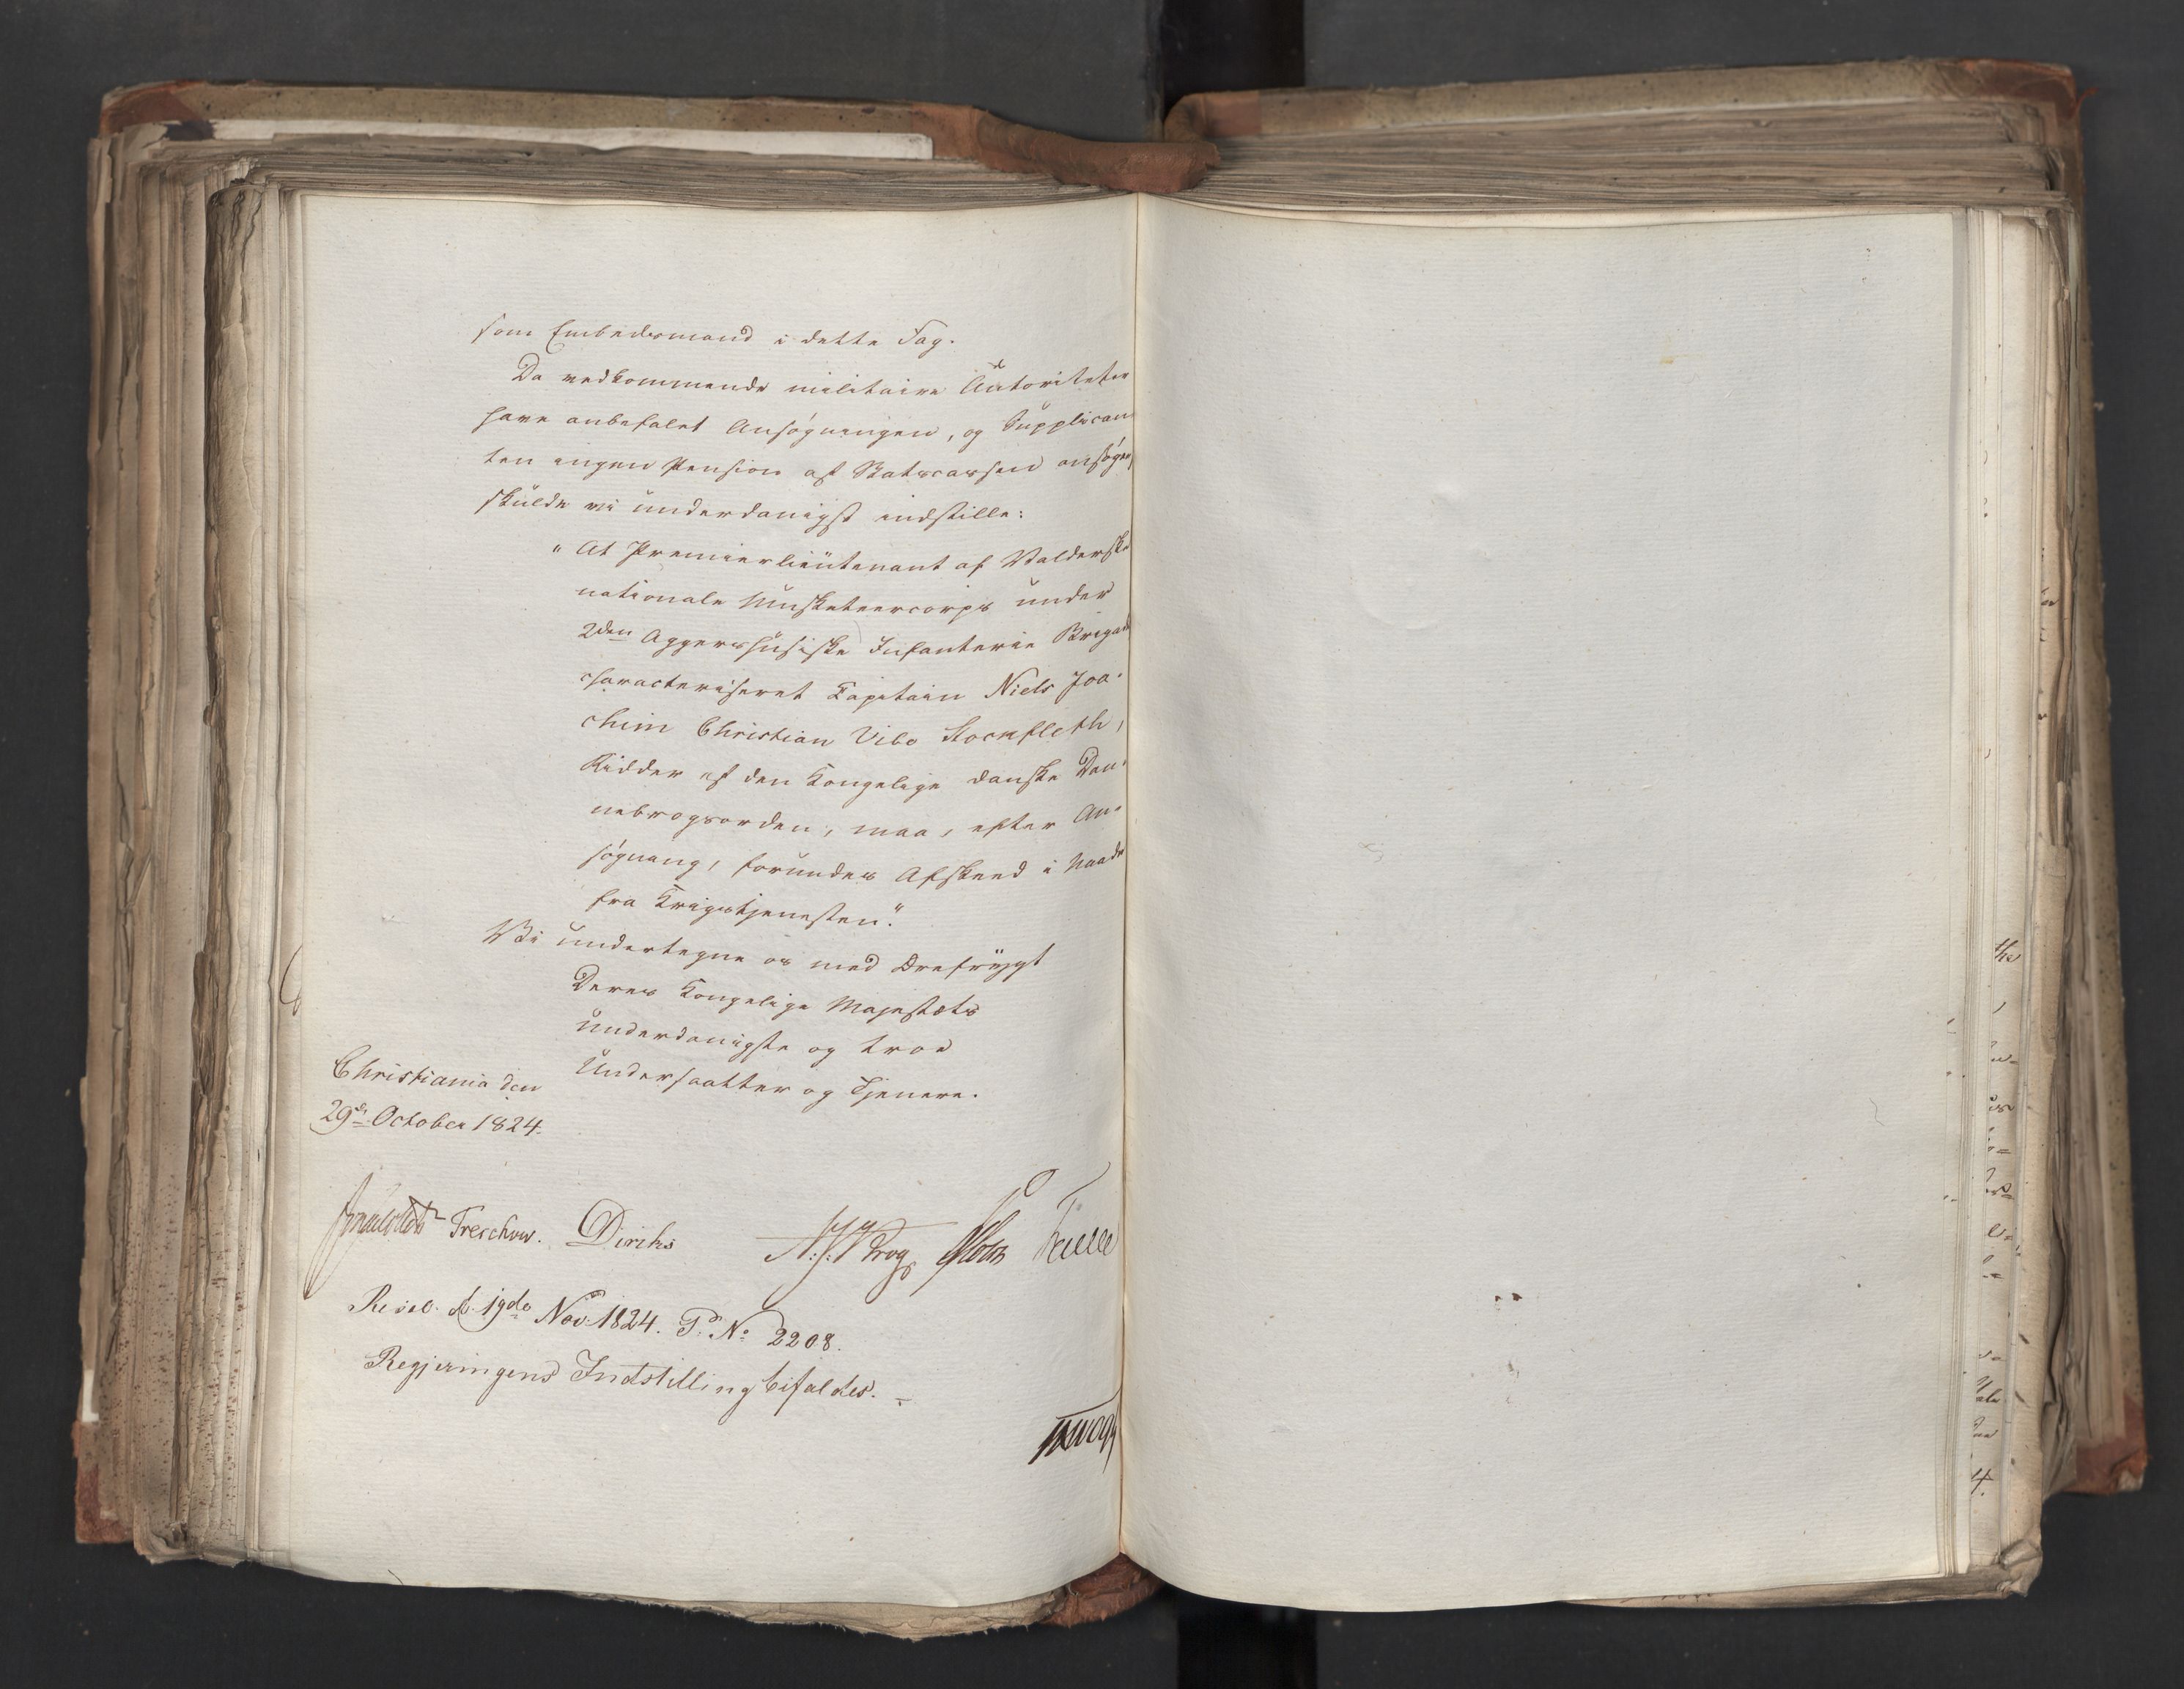 som Embedsmand i dette Fag.
Da vedkommende militaire Autoriteter
have anbefalet Ansøgningen, og Supplican
ten ingen Pension af Statscassen ansøger,
skulde vi underdanigst indstille:
"At Premierlieutenant af Valderske
nationale Musketeercorps under
2den Aggershusiske Infanterie Brigade
characteriseret Capitain Niels Joa-
chim Christian Vibe Stockfleth,
Ridder af den Kongelige danske Dan-
nebrogsorden, maa, efter An-
søgning, forundes Afskeed i Naade
fra Krigstjenesten."
Vi undertegne os med Ærefrygt
Deres Kongelige Majestæts
underdanigste og troe
Undersaatter og Tjenere.
Christiania den
29de October 1824.
Treschow. Diriks Krog Motz
Resol. d. 19de Nov: 1824. P. No 2208.
Regjeringens Indstilling bifaldes.